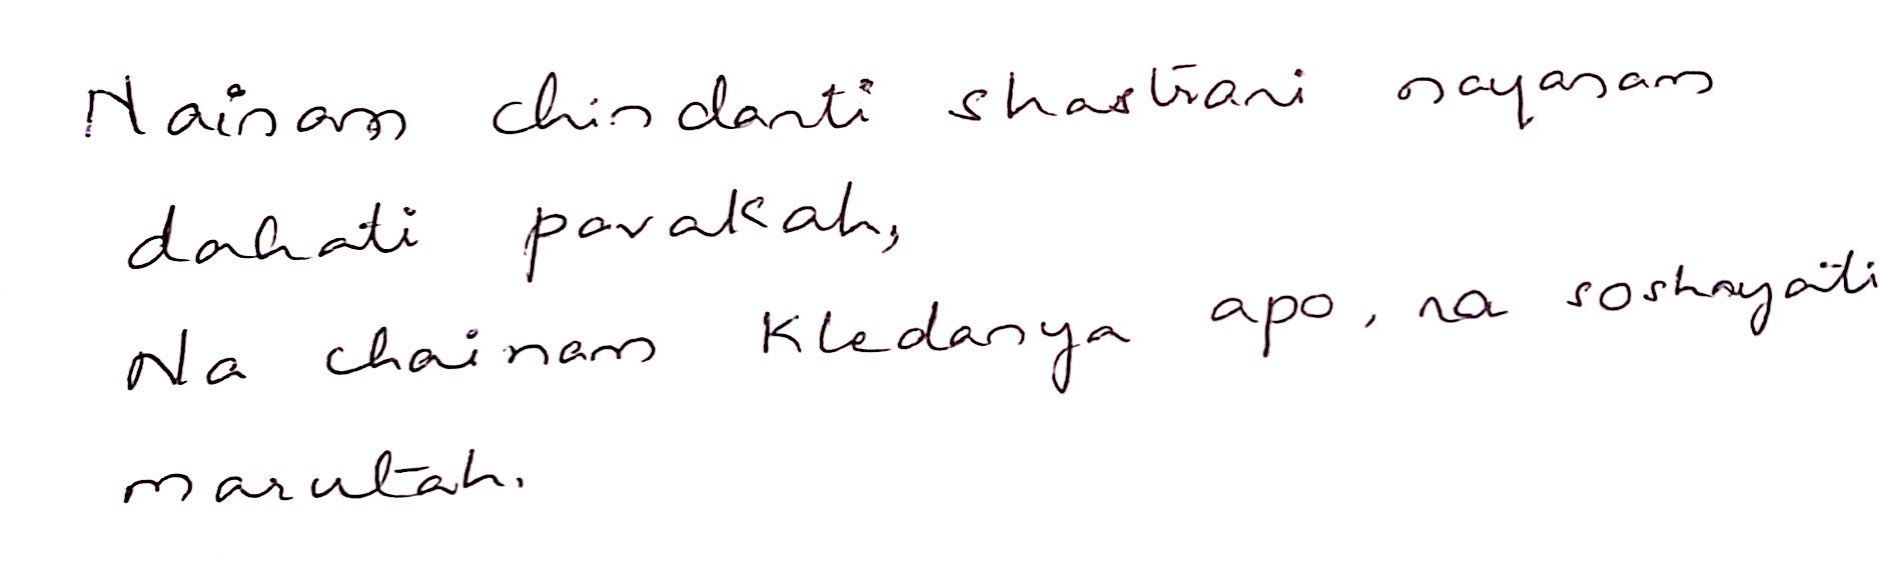 Nainam chindanti shastrani nayanam
dahati pavakah,
Na chainam kledanya apo, na soshayati
marutah.